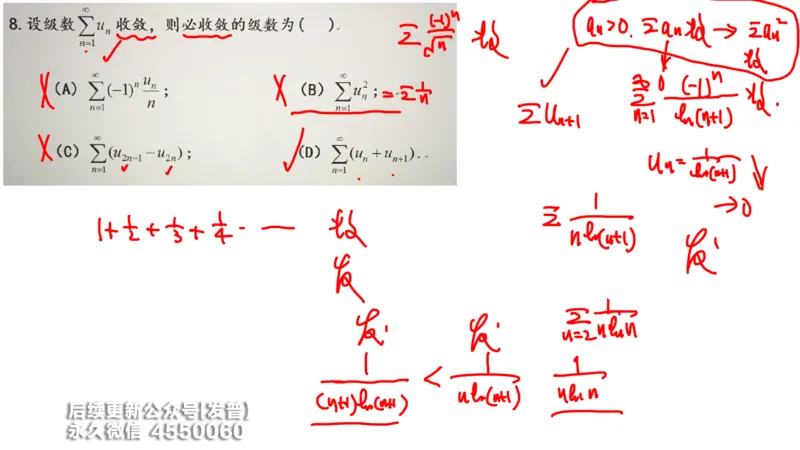 8.设级数$\sum_{n=1}^{\infty} u_n$ 收敛，则必收敛的级数为(    ).
(A) $\sum_{n=1}^{\infty} (-1)^n \frac{u_n}{n}$;
(B) $\sum_{n=1}^{\infty} u_n^2$; $= \Sigma \frac{1}{n}$
(C) $\sum_{n=1}^{\infty} (u_{2n-1} - u_{2n})$;
(D) $\sum_{n=1}^{\infty} (u_n + u_{n+1})$.
$\Sigma \frac{(-1)^n}{\sqrt{n}}$ 收
$a_n > 0. \Sigma a_n$ 收 → $\Sigma a_n^2$
收
$\Sigma u_{n+1}$
$\sum_{n=1}^{\infty} \frac{(-1)^n}{\ln(n+1)}$ 收.
$u_n = \frac{1}{\ln(n+1)}$ ↓
→ 0
$\Sigma \frac{1}{n \ln(n+1)}$
$1 + \frac{1}{2} + \frac{1}{3} + \frac{1}{4} \cdots$ 收
$\sum_{n=2} \frac{1}{n \ln n}$
$\frac{1}{(n+1)\ln(n+1)} < \frac{1}{n \ln(n+1)}$ $\frac{1}{n \ln n}$
后续更新公众号[发普]
永久微信 4550060